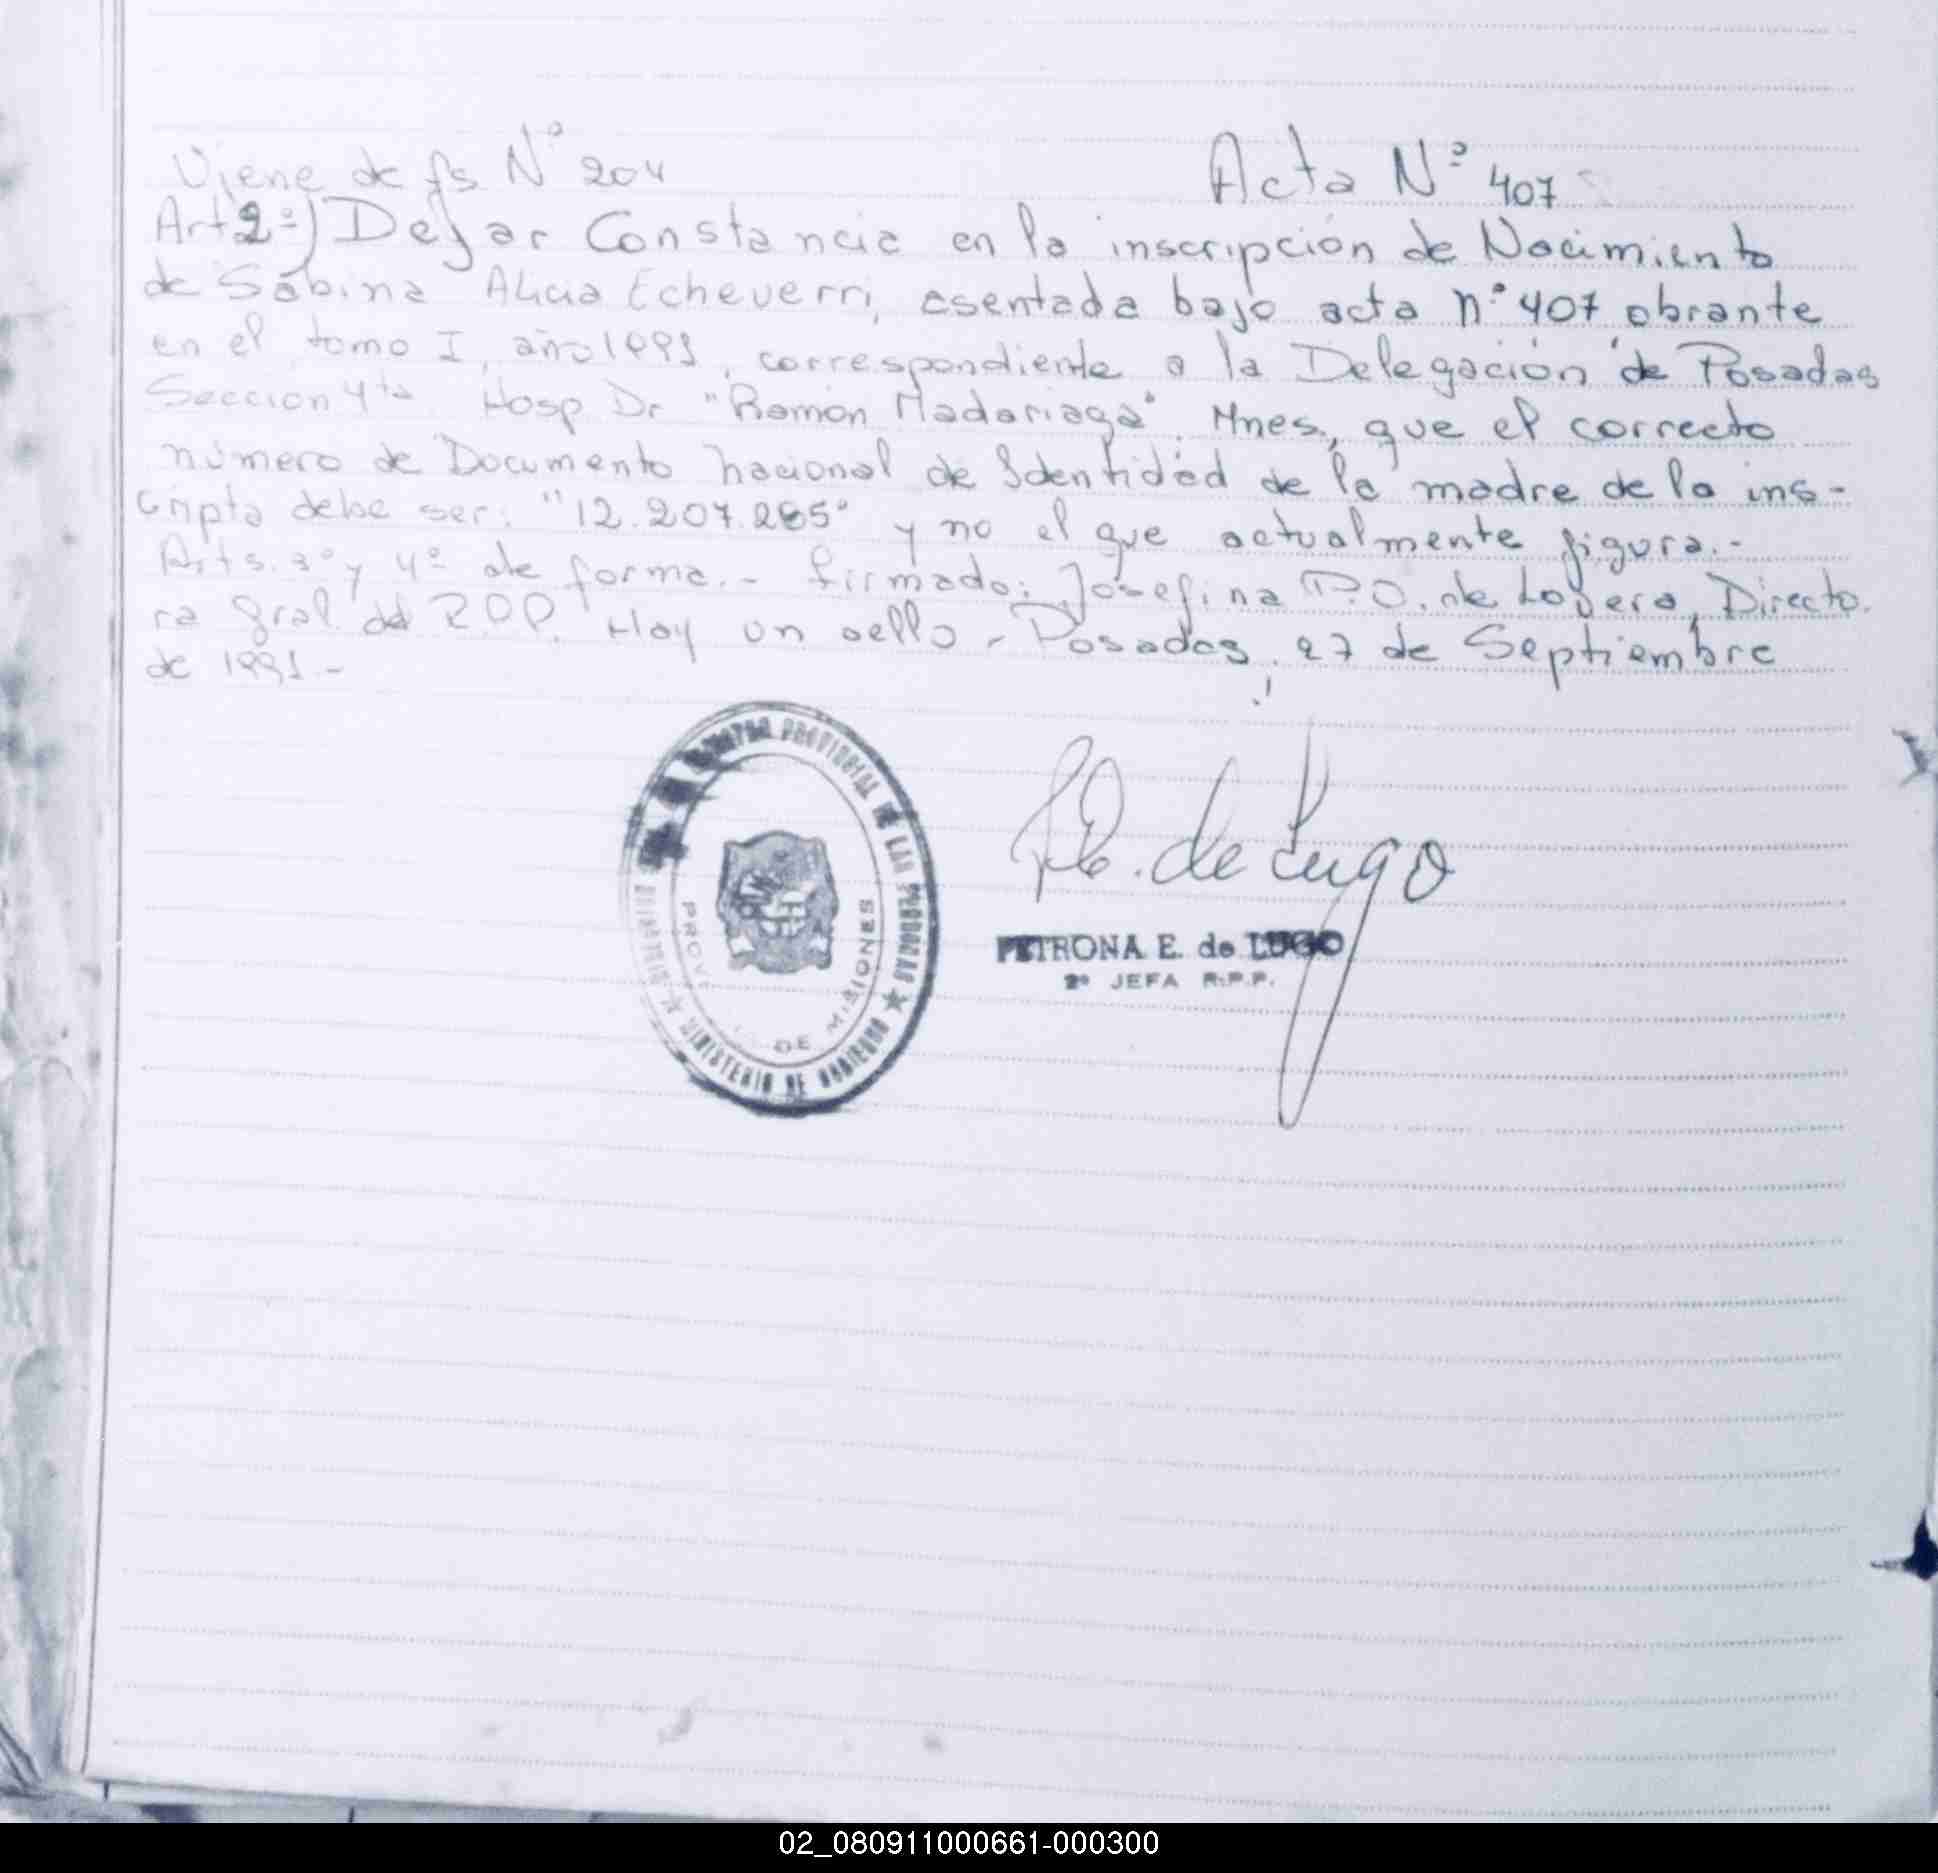 Viene de fs Nº 204
Acta Nº 407
Art 2º) Dejar Constancia en la inscripción de Nacimiento
de Sabina Alicia Echeverri, asentada bajo acta nº 407 obrante
en el tomo I, año 1991, correspondiente a la Delegación de Posadas
Seccion 4ta Hosp Dr "Ramón Madariaga". Mnes, que el correcto
número de Documento nacional de Identidad de la madre de la ins-
cripta debe ser: "12.207.285" y no el que actualmente figura.-
Arts. 3º y 4º de forma.- firmado: Josefina P.O. de Lovera, Directo.
ra gral. del R.P.P. Hay un sello - Posadas, 27 de Septiembre
de 1991.-
PROVINCIAL DE LAS PERSONAS
MINISTERIO DE GOBIERNO
DE MISIONES
P.E. de Lugo
PETRONA E. de LUGO
2º JEFA R.P.P.
02_080911000661-000300